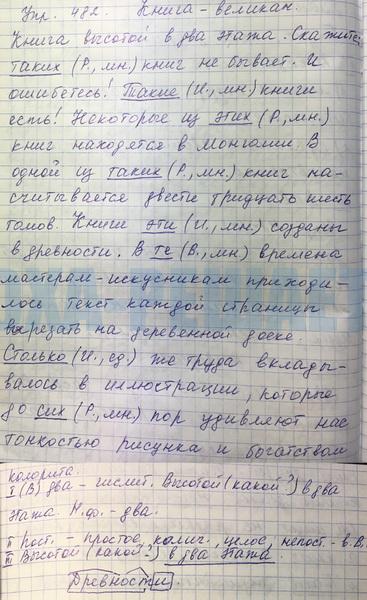 Упр. 482. Книга-великан.
Книга высотой в два этажа. Скажите:
таких (Р., мн.) книг не бывает. И
ошибетесь! Такие (И., мн.) книги
есть! Некоторые из этих (Р., мн.)
книг находятся в Монголии. В
одной из таких (Р., мн.) книг на-
считывается двести тридцать шесть
томов. Книги эти (И., мн.) созданы
в древности. В те (В., мн) времена
мастерам-искусникам приходи-
лось текст каждой страницы
вырезать на деревенной доске.
Столько (И., ед.) же труда вклады-
валось в иллюстрации, которые
до сих (Р., мн.) пор удивляют нас
тонкостью рисунка и богатством
колорита.
I (В) два - числит. Высотой (какой?) в два
этажа. Н.ф. - два.
II пост. - простое, колич., целое, непост. - в В.
III Высотой (какой?) в два этажа.
Древности.